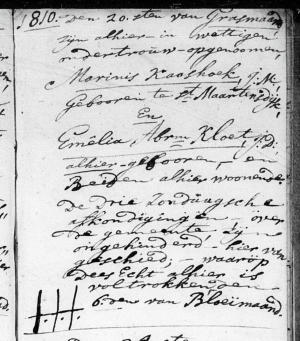 1810. den 20.sten van Grasmaand
zijn alhier in wettigen
ondertrouw-opgenomen,
Marinis Kaashoek, j:M:
Gebooren te St. Maartensdijk
En
Emelia, Abrm Kloet, j:d:
alhier-gebooren, en
Beiden alhier woonende
De Drie Zondaagsche
afkondigingen - over
de gemeente zijn
ongehinderd hier van
geschied; - waarop
Dees Echt alhier is
voltrokken den
6.den van Bloeimaand.
H.H.